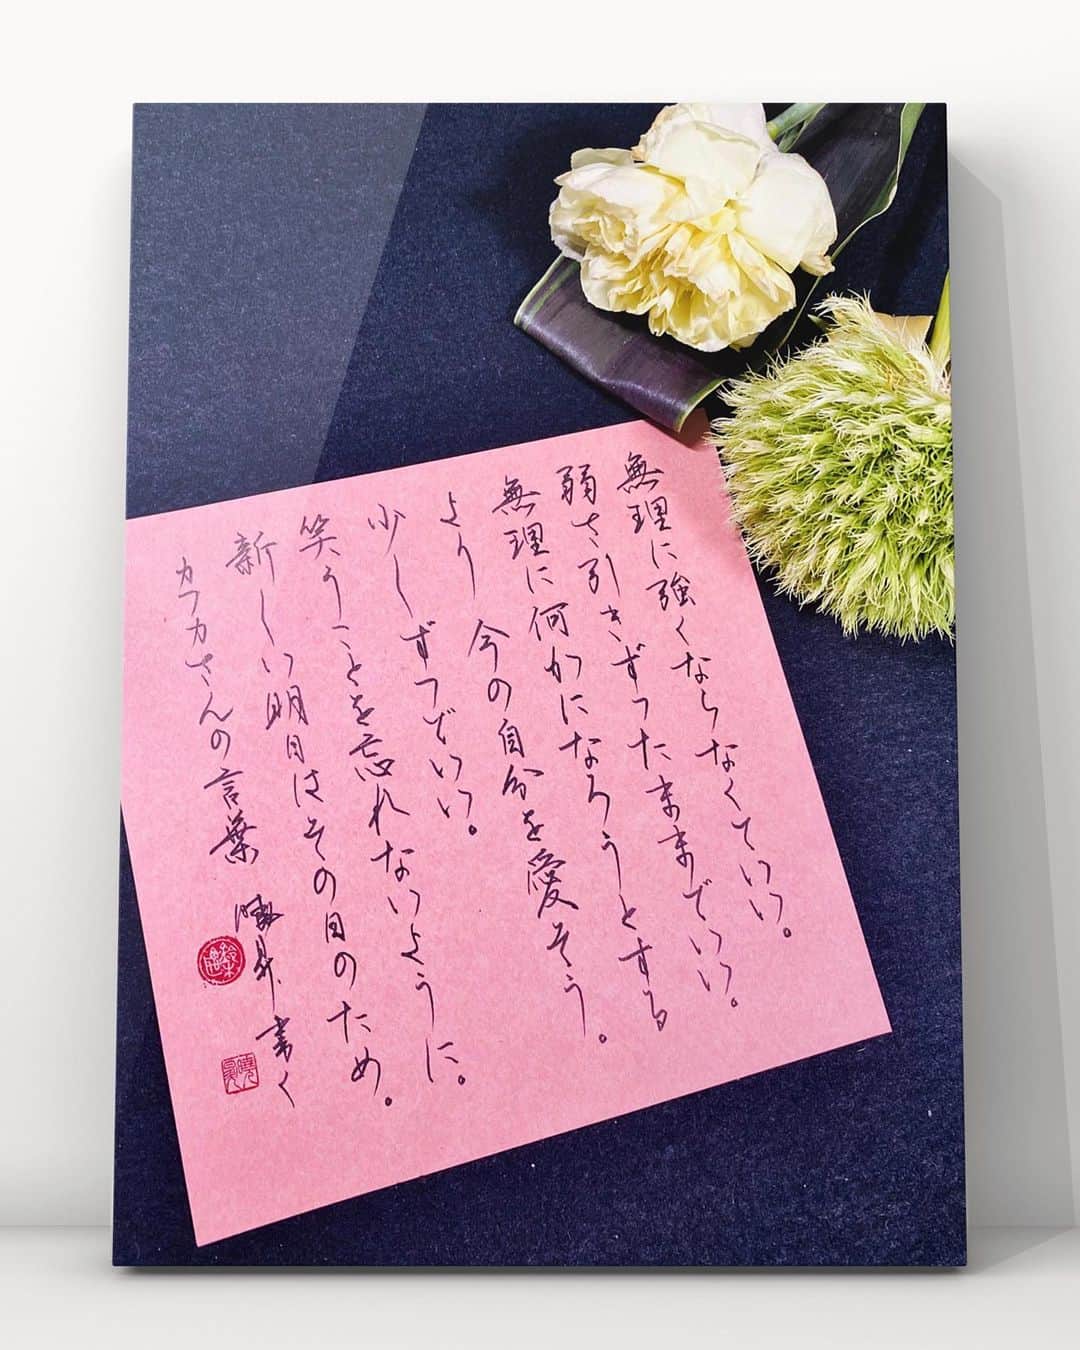 無理に強くならなくていい。
弱さ引きずったままでいい。
無理に何かになろうとする
より 今の自分を愛そう。
少しずつでいい。
笑うことを忘れないように。
新しい明日はその日のため。
カフカさんの言葉
書く